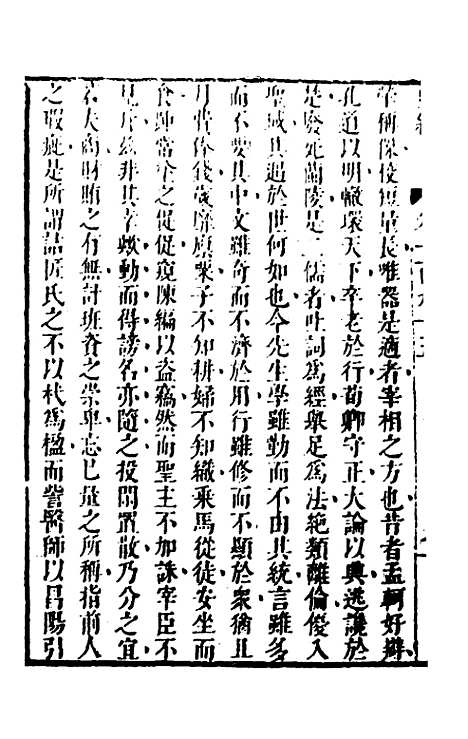 稱傑校短量長唯器是適者宰相之方也昔者孟軻好辯
孔道以明轍環天下卒老於行荀卿守正大論以興逃讒於
是廢死蘭陵是二儒者吐詞爲經舉足爲法絕類離倫優入
聖域其遇於世何如也今先生學雖勤而不由其統言雖多
而不要其中文雖奇而不濟於用行雖修而不顯於衆猶且
月費俸錢歲靡廩粟子不知耕婦不知織乘馬從徒安坐而
食踵常途之促促窺陳編以盜竊然而聖主不加誅宰臣不
見斥茲非其幸歟動而得謗名亦隨之投閒置散乃分之宜
若夫商財賄之有無計班資之崇卑忘已量之所稱指前人
之瑕疵是所謂詰匠氏之不以杙爲楹而訾醫師以昌陽引